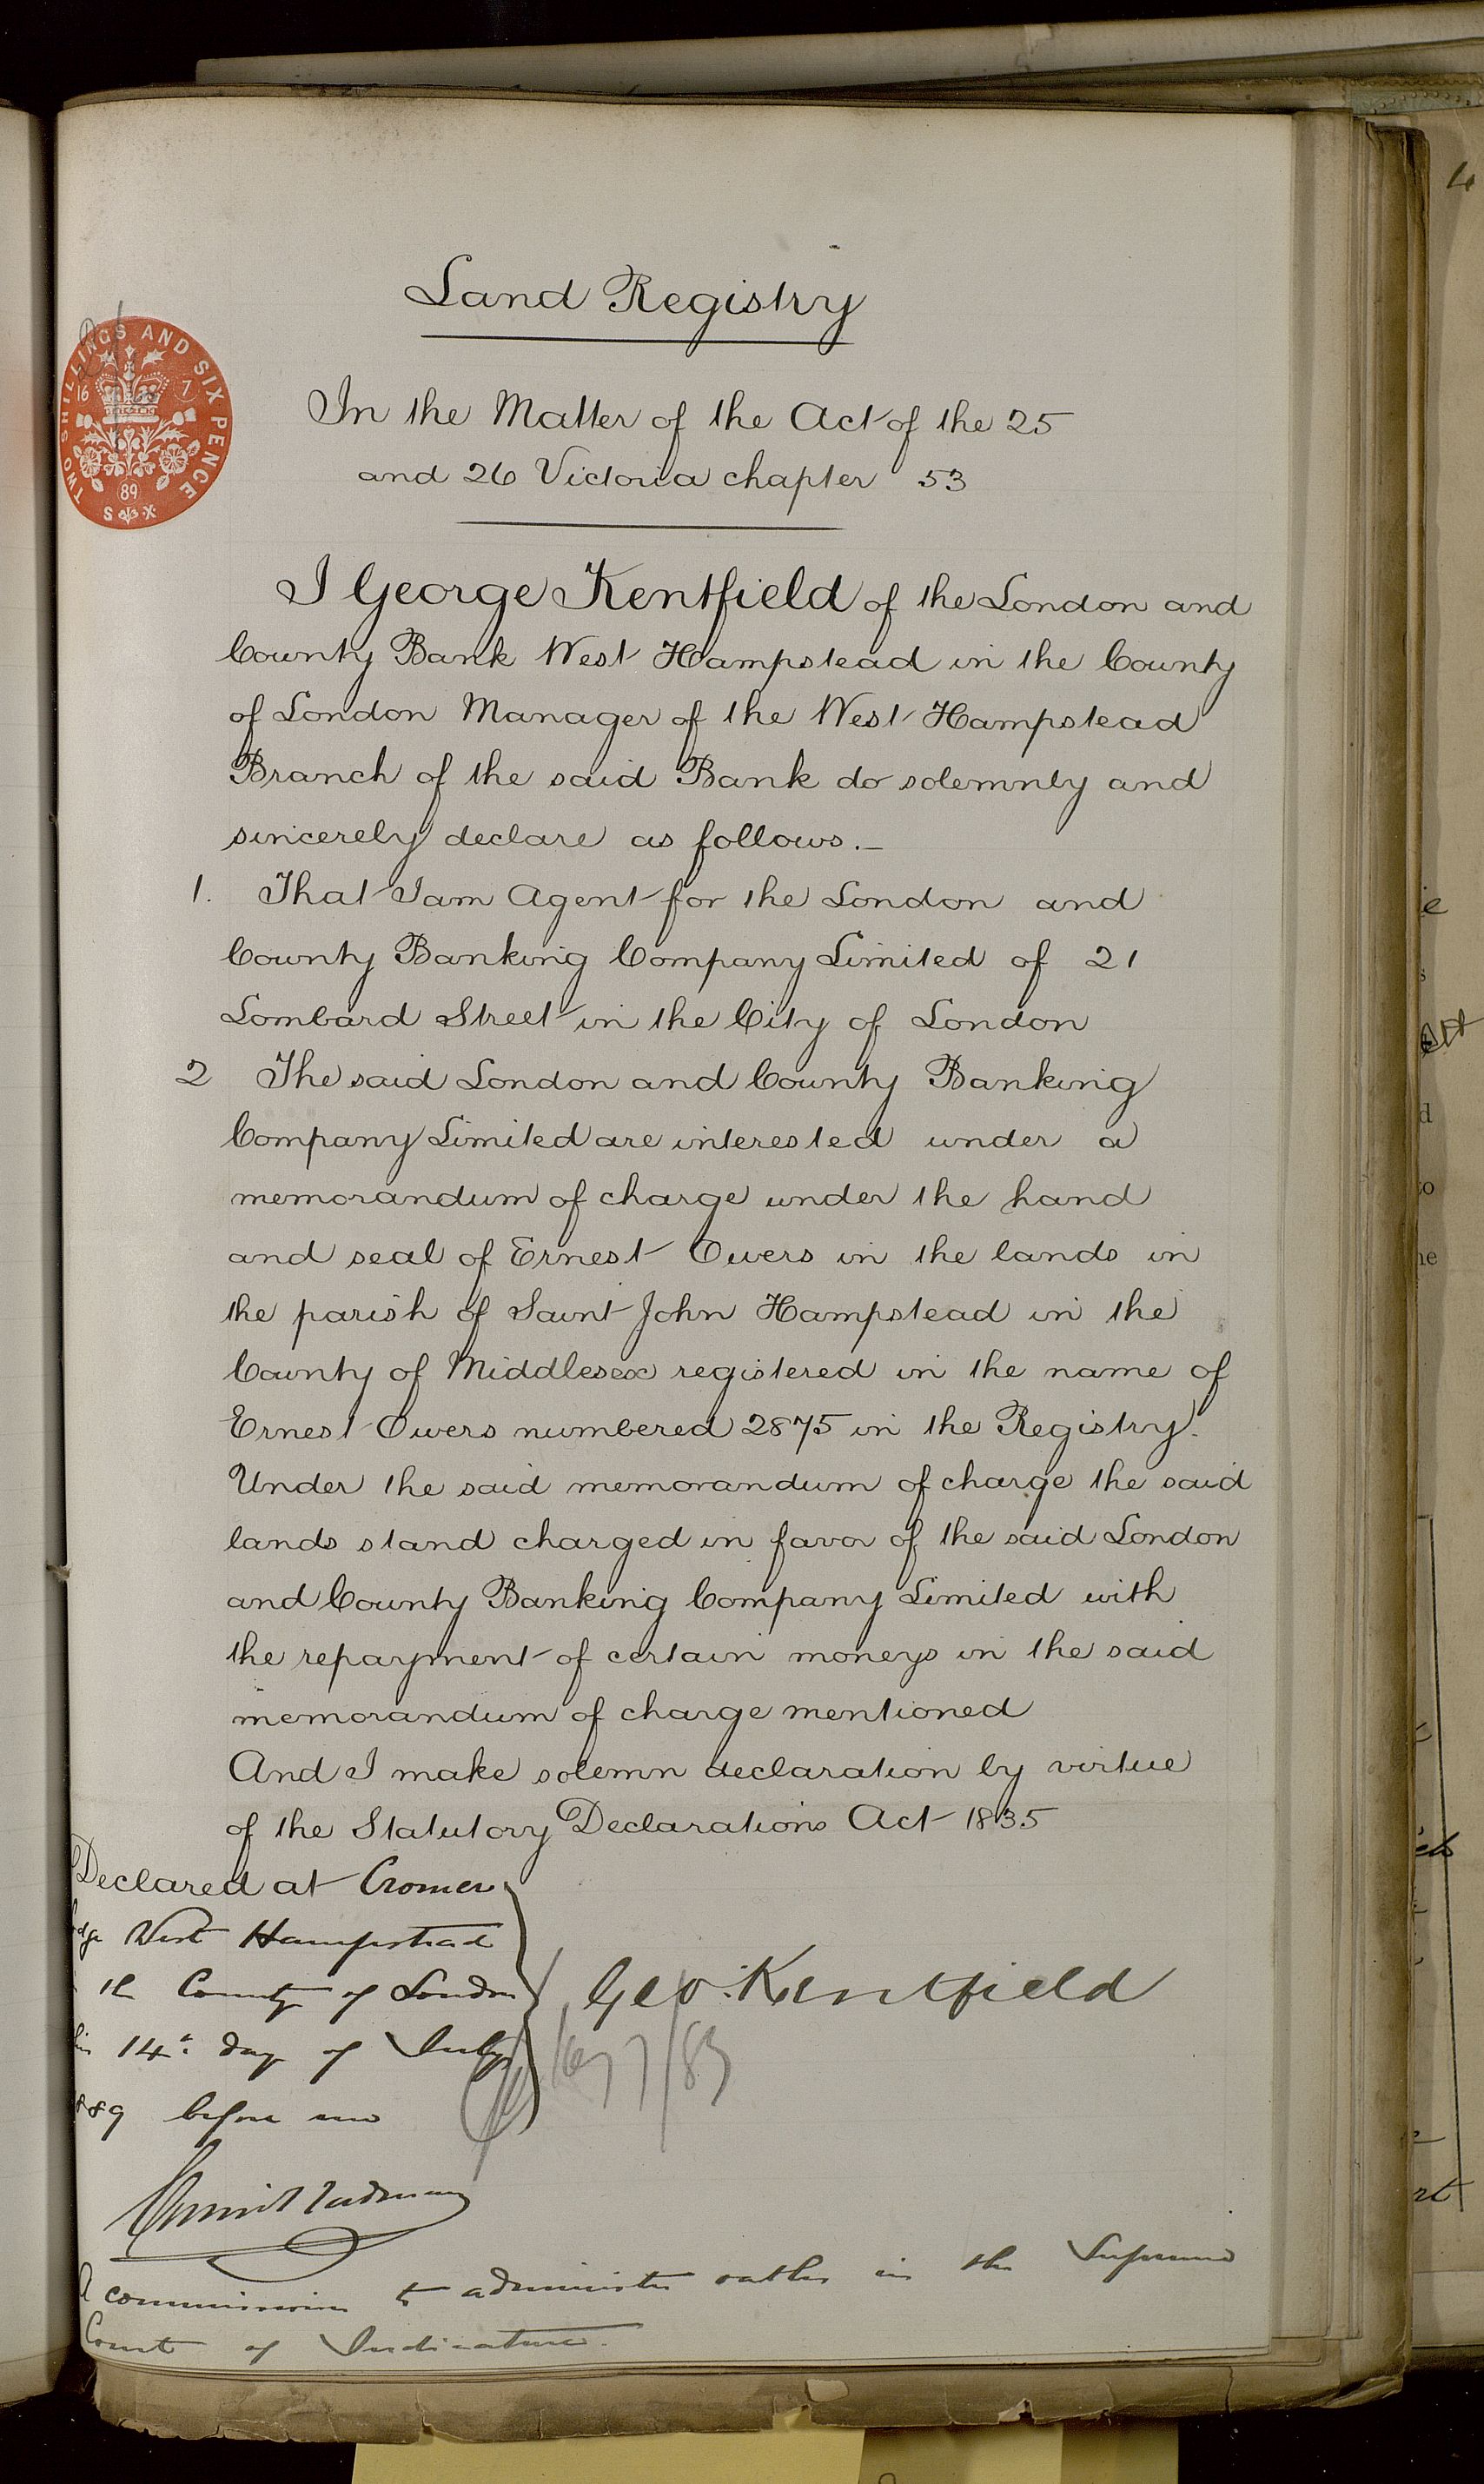 Land Registry
In the Matter of the Act of the 25
and 26 Victoria chapter 53
TWO SHILLINGS AND SIX PENCE
16 7
89
I George Kentfield of the London and
County Bank West Hampstead in the County
of London Manager of the West Hampstead
Branch of the said Bank do solemnly and
sincerely declare as follows.—
1. That I am Agent for the London and
County Banking Company Limited of 21
Lombard Street in the City of London
2 The said London and County Banking
Company Limited are interested under a
memorandum of charge under the hand
and seal of Ernest Owers in the lands in
the parish of Saint John Hampstead in the
County of Middlesex registered in the name of
Ernest Owers numbered 2875 in the Registry.
Under the said memorandum of charge the said
lands stand charged in favor of the said London
and County Banking Company Limited with
the repayment of certain moneys in the said
memorandum of charge mentioned
And I make solemn declaration by virtue
of the Statutory Declarations Act 1835
Declared at Cromer
West Hampstead
the County of London
14th day of July
889 before me
Geo. Kentfield
A commissioner to administer oaths in the Supreme
Court of Judicature.